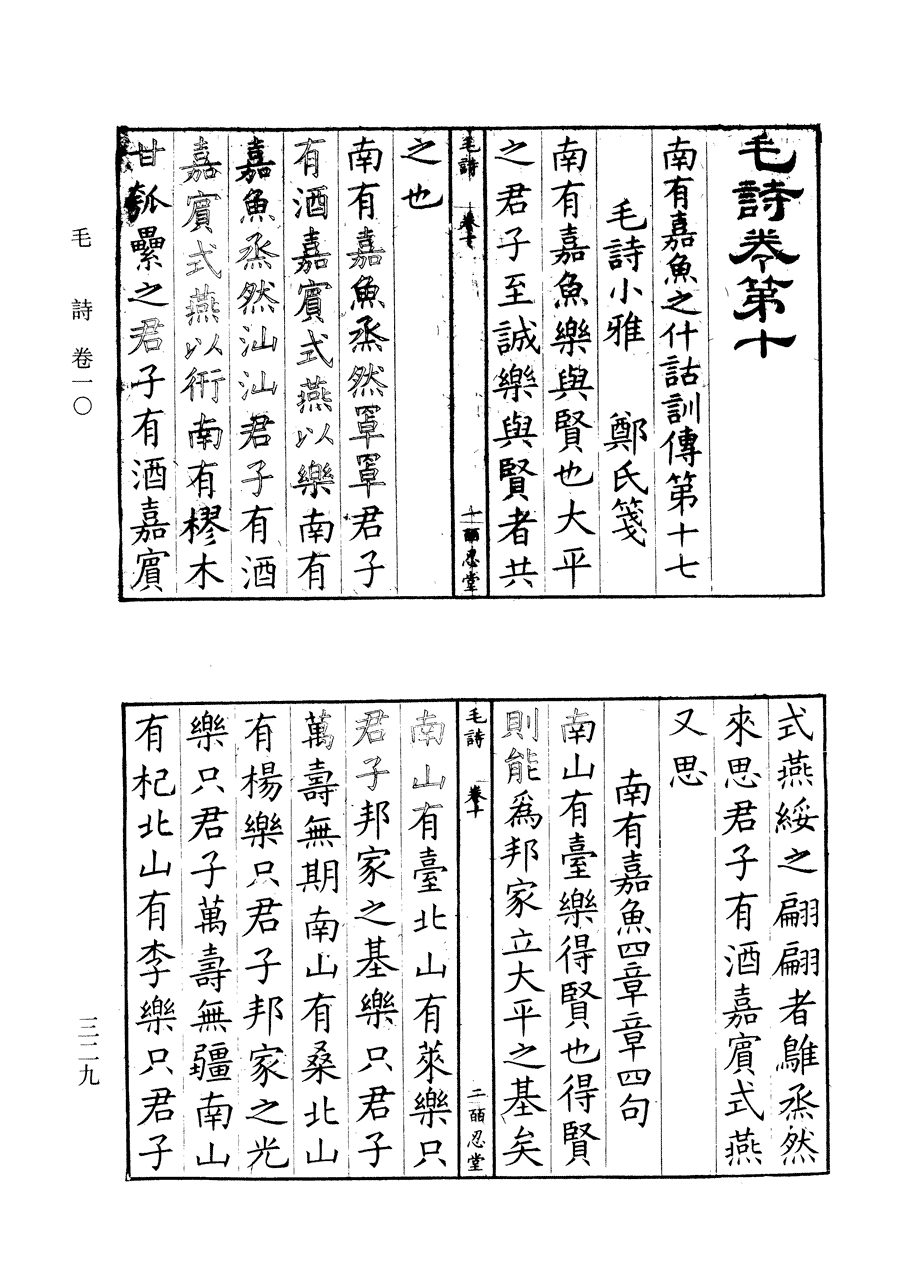 毛詩卷第十
南有嘉魚之什詁訓傳第十七
毛詩小雅　鄭氏箋
南有嘉魚樂與賢也大平
之君子至誠樂與賢者共
毛詩　卷十　一　皕忍堂
之也
南有嘉魚烝然罩罩君子
有酒嘉賓式燕以樂南有
嘉魚烝然汕汕君子有酒
嘉賓式燕以衎南有樛木
甘瓠纍之君子有酒嘉賓
式燕綏之翩翩者鵻烝然
來思君子有酒嘉賓式燕
又思
南有嘉魚四章章四句
南山有臺樂得賢也得賢
則能爲邦家立大平之基矣
毛詩　卷十　二　皕忍堂
南山有臺北山有萊樂只
君子邦家之基樂只君子
萬壽無期南山有桑北山
有楊樂只君子邦家之光
樂只君子萬壽無疆南山
有杞北山有李樂只君子
毛詩　卷一〇
三二九